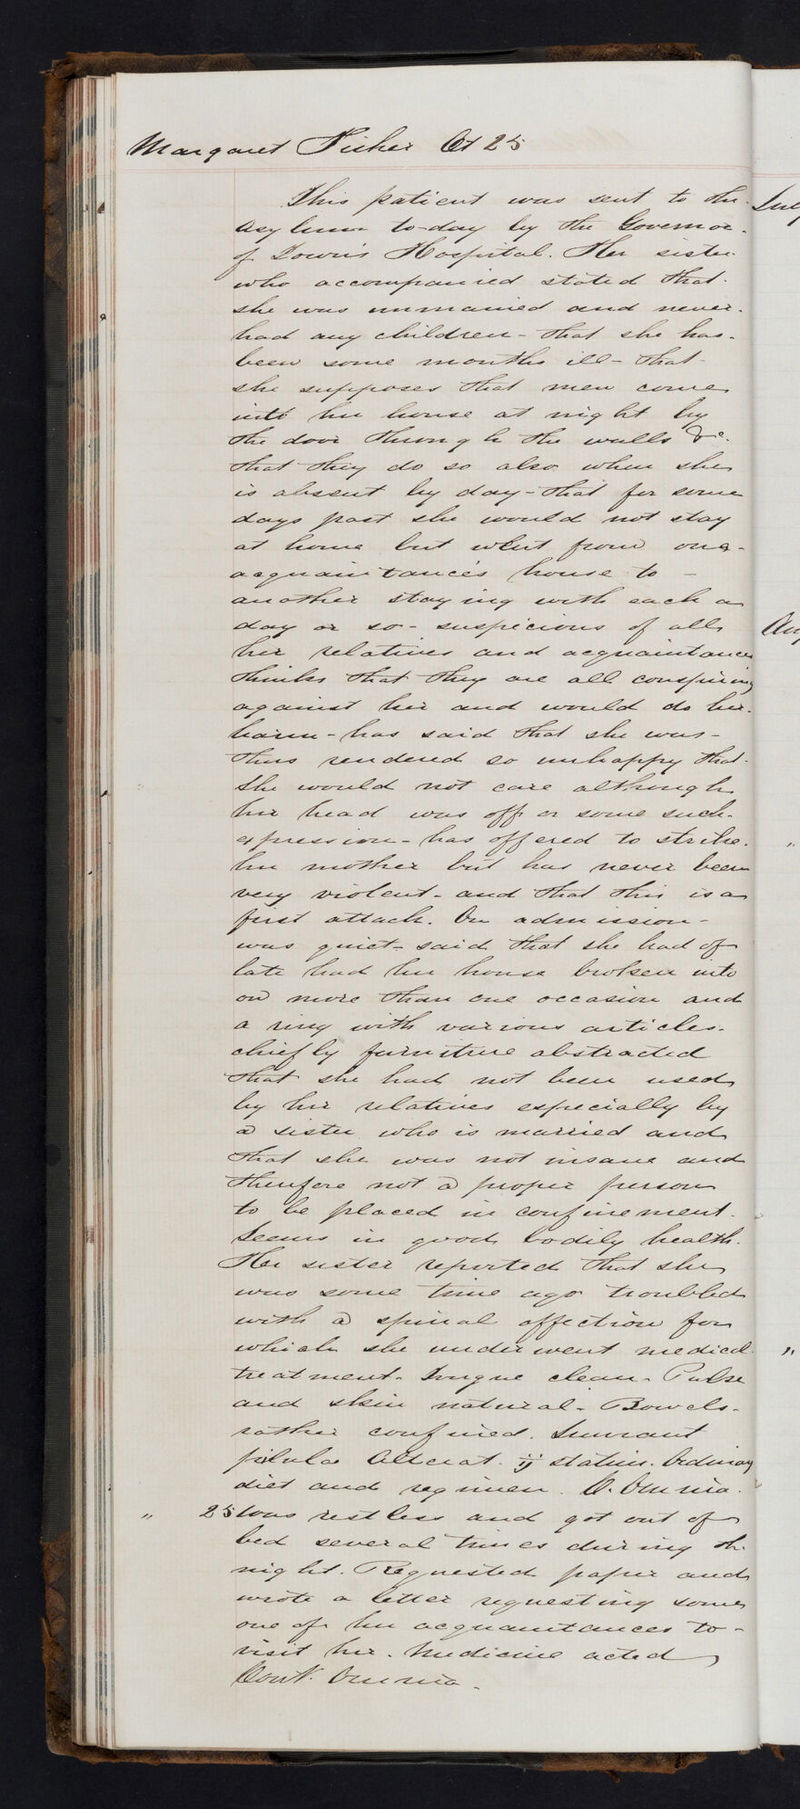 Margaret Fisher Æt 25
This patient was sent to the
Asylum to-day by the Governor
of Town's Hospital. Her sister
who accompanied stated that
she was unmarried and never
had any children - that she has
been some months ill - that
she supposes that men come
into her house at night by
the door through the walls &c.
that they do so also when she
is absent by day - that for some
days past she would not stay
at home but went from one
acquaintance's house to -
another staying with each a
day or so - suspicious of all
her relatives and acquaintances
thinks that they are all conspiring
against her and would do her
harm - has said that she was -
thus rendered so unhappy that
she would not care although
her head was off or some such
expression - has offered to strike
her mother but has never been
very violent - and that this is a
first attack. On admission -
was quiet - said that she had of
late had her house broken into
on more than one occasion and
a ring with various articles
chiefly furniture abstracted
that she had not been used
by her relatives especially by
a sister who is married and
that she was not insane and
therefore not a proper person
to be placed in confinement.
Seems in good bodily health.
Her sister reported that she
was some time ago troubled
with a spinal affection for
which she underwent medical
treatment. Tongue clean. Pulse
and skin natural - Bowels
rather confined. Sumant
pilulae Alterat. ij statim. Ordinary
diet and regimen. C. Omnia.
" 25 Was restless and got out of
bed several times during th
night. Requested paper and
wrote a letter requesting some
one of her acquaintances to -
visit her. Medicine acted
Cont. Omnia.
July
Aug
"
"